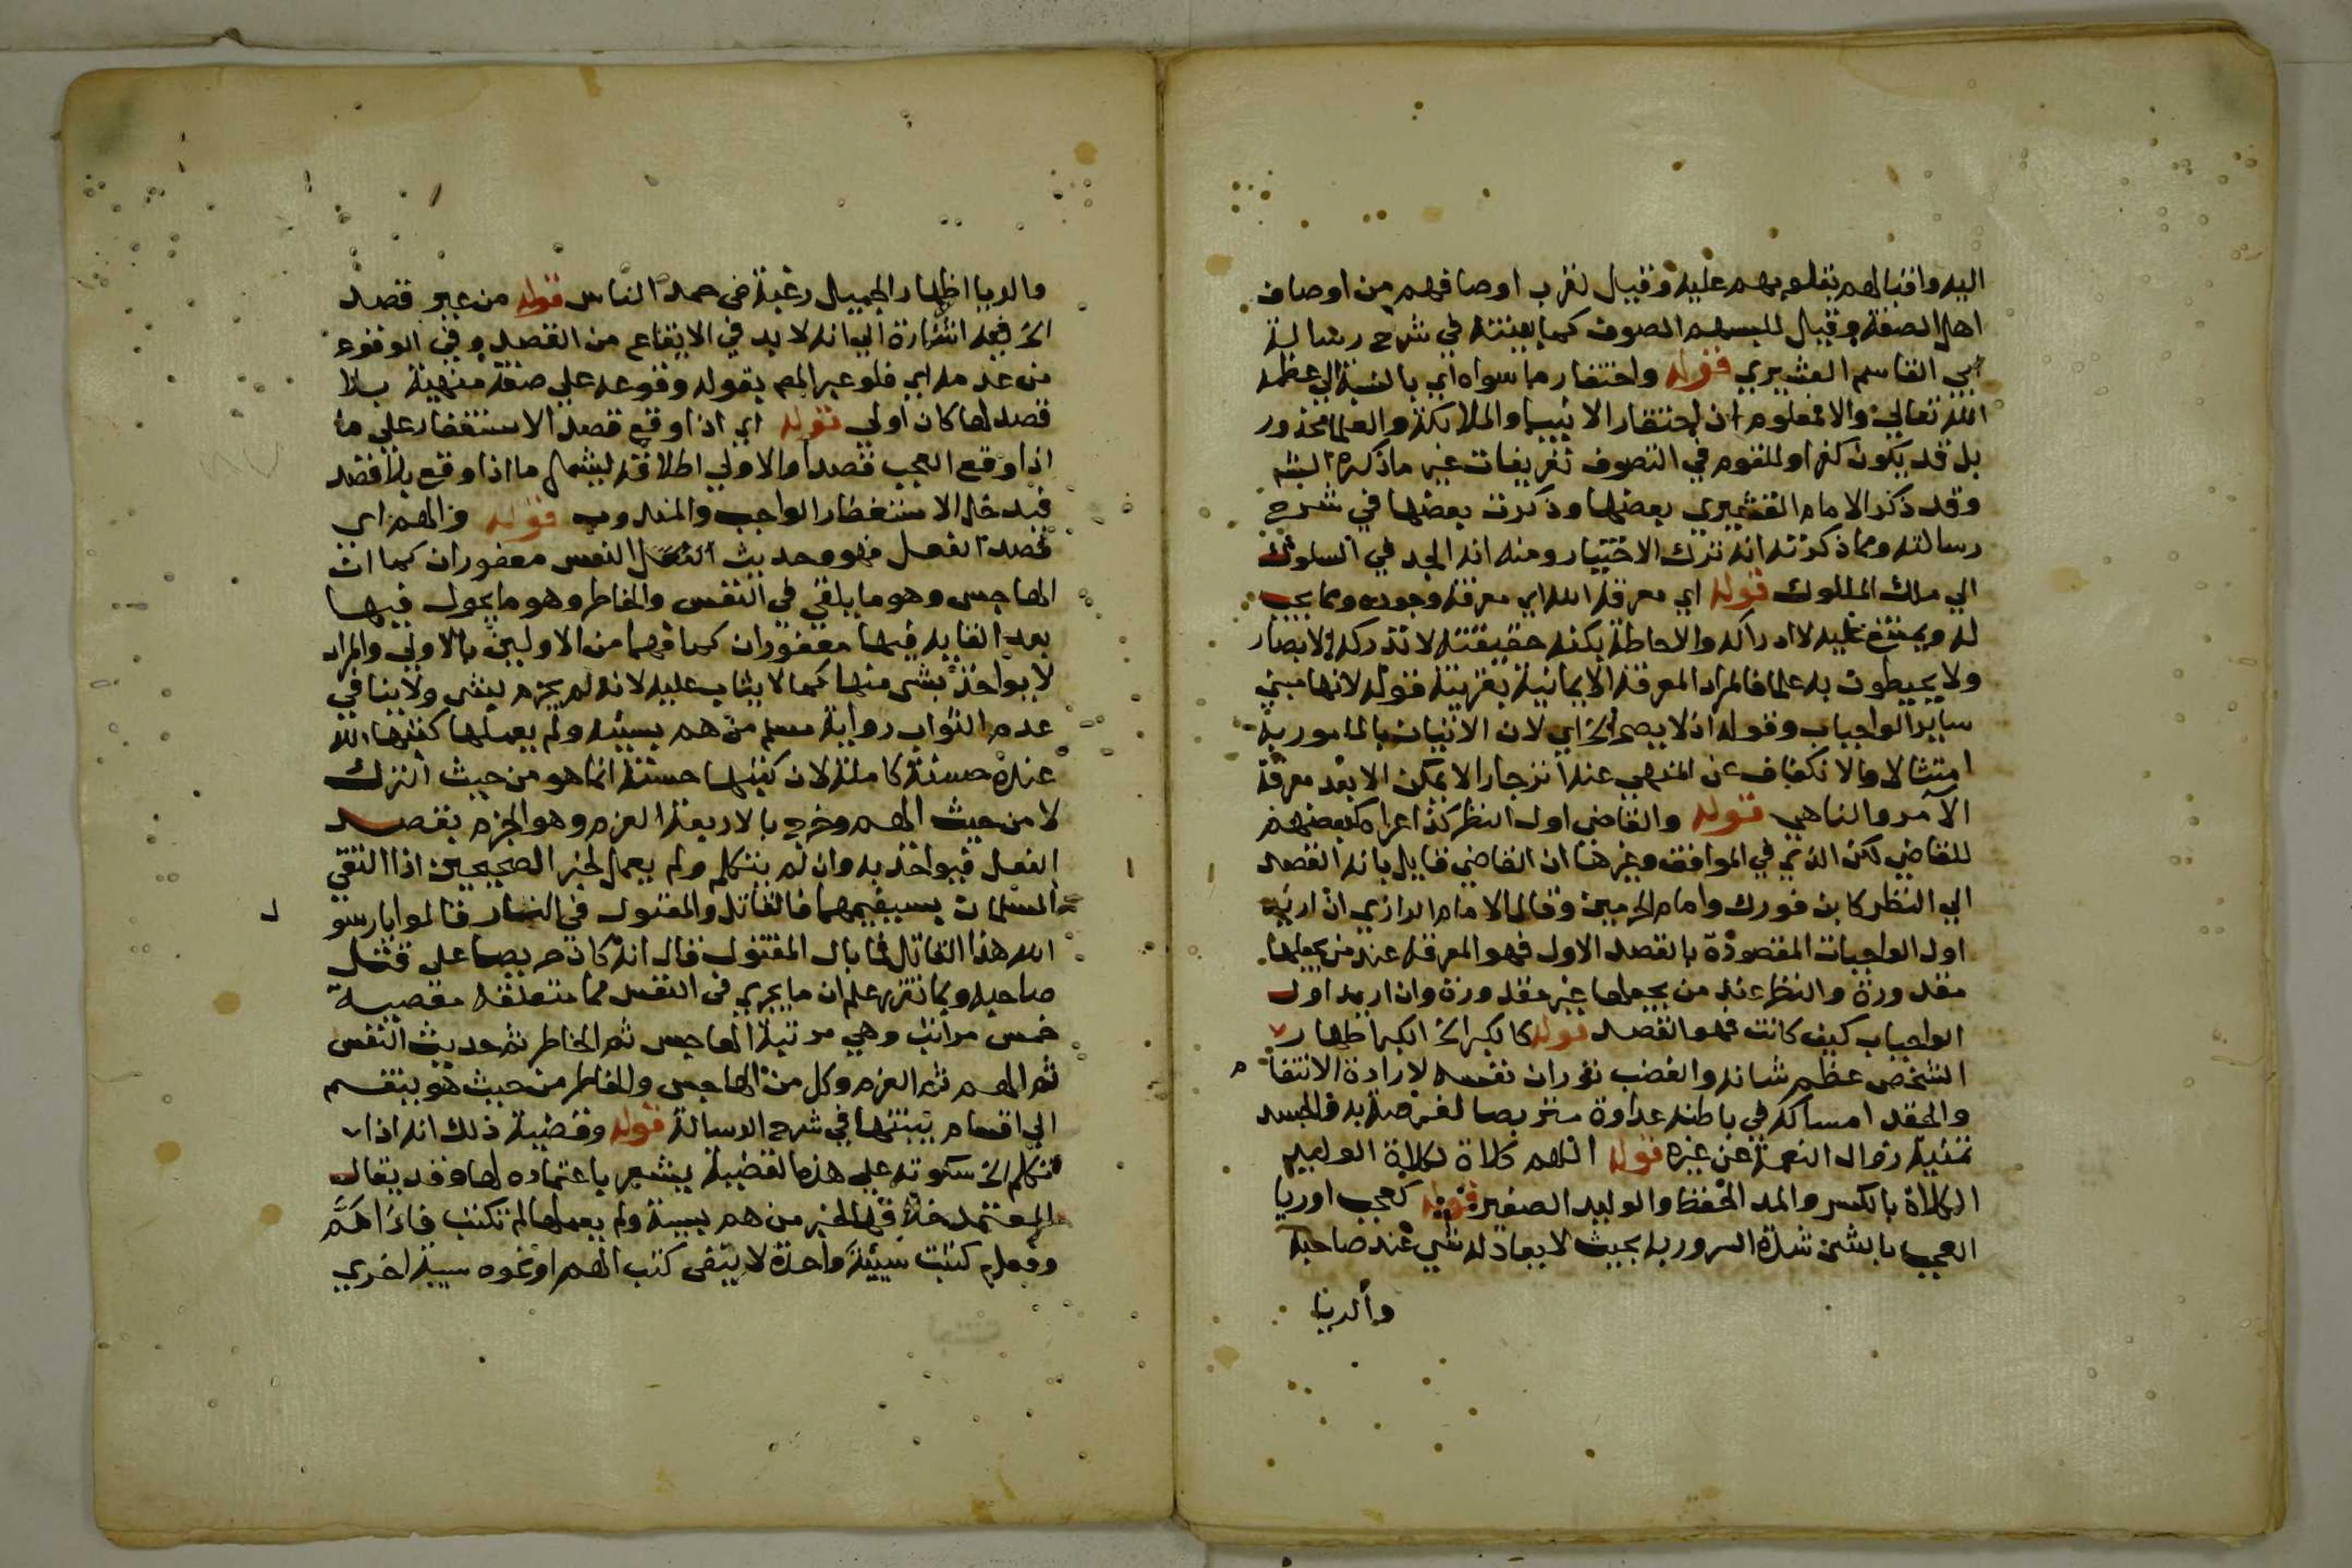 اليه واقبالهم بقلوبهم عليه وقيل لقرب اوصافهم من اوصاف
اهل الصفة وقيل للبسهم الصوف كما بينته في شرح رسالة
ابي القاسم القشيري قوله واحتقار ما سواه اي بالنسبة الي عظمة
الله تعالي والا فمعلوم ان احتقار الانبيا والملايكة والعلما محذور
بل قد يكون كفرا وللقوم في التصوف تعريفات غير ما ذكره الشم
وقد ذكر الامام القشيري بعضها وذكرت بعضها في شرح
رسالته ومما ذكرته انه ترك الاختيار ومنه انه الجد في السلوك
الي ملك الملوك قوله اي معرفة الله اي معرفة وجوده وما يجب
له ويمتنع عليه لا ادراكه والاحاطة بكنه حقيقته لا تدركه الابصار
ولا يحيطون به علما فالمراد المعرفة الايمانية بقرينة قوله لانها مبني
ساير الواجبات وقوله اذ لا يصح الخ اي لان الاتيان بالمامور به
امتثالا والانكفاف عن المنهي عنه انزجارا لا يمكن الا بعد معرفة
الآمر والناهي قوله والقاضي اول النظر كذا عزاه بعضهم
للقاضي لكن الذي في المواقف وغيرها ان القاضي قايل بانه القصد
الي النظر كابن فورك وامام الحرمين وقال الامام الرازي ان اريد
اول الواجبات المقصودة بالقصد الاول فهو المعرفة عند من يجعلها
مقدورة والنظر عند من يجعلها غير مقدورة وان اريد اول
الواجبات كيف كانت فهو القصد قوله كالكبر الخ الكبر اظهار
الشخص عظم شانه والغضب ثوران نفسه لارادة الانتقام
والحقد امساكه في باطنه عداوة متربصا لفرصة به والحسد
تمنيه زوال النعمة عن غيره قوله اللهم كلاة كلاية الوليد
الكلاة بالكسر والمد الحفظ والوليد الصغير قوله كعجب او ريا
العجب بالشي شدة السرور به بحيث لا يعادله شي عند صاحبه
والريا
والريا اظهار الجميل رغبة في حمد الناس قوله من غير قصد
الخ فيه اشارة الي انه لا بد في الايقاع من القصد وفي الوقوع
من عدمه اي فلو عبر المم بقوله وقوعه علي صفة منهية بلا
قصد لها كان اولي قوله اي اذا وقع قصد الاستغفار علي ما
اذا وقع العجب قصدا والاولي اطلاقه ليشمل ما اذا وقع بلا قصد
فيدخل الاستغفار الواجب والمندوب قوله والهم اي
قصد الفعل فهو وحديث النفس مغفوران كما ان
الهاجس وهو ما يلقي في النفس والخاطر وهو ما يجول فيها
بعد القايه فيها مغفوران كما فهما من الاولين بالاولي والمراد
لا يواخذ بشي منها كما لا يثاب عليه لانه لم يجزم بشي ولا ينافي
عدم الثواب رواية مسلم من هم بسيئة ولم يعملها كتبها الله
عنده حسنة كاملة لان كتبها حسنة انما هو من حيث الترك
لا من حيث الهم وخرج بالاربعة العزم وهو الجزم بقصد
الفعل فيواخذ به وان لم يتكلم ولم يعمل لخبر الصحيحين اذا التقي
المسلمان بسيفيهما فالقاتل والمقتول في النار قالوا يا رسول
الله هذا القاتل فما بال المقتول قال انه كان حريصا علي قتل
صاحبه وبما تقرر علم ان ما يجري في النفس مما متعلقه معصية
خمس مراتب وهي مرتبة الهاجس ثم الخاطر ثم حديث النفس
ثم الهم ثم العزم وكل من الهاجس والخاطر من حيث هو ينقسم
الي اقسام بينتها في شرح الرسالة قوله وقضية ذلك انه اذا
تكلم الخ سكوته علي هذه القضية يشعر باعتماده لها وقد يقال
المعتمد خلافها لخبر من هم بسية ولم يعملها لم تكتب فاذا هم
وفعل كتبت سيئة واحدة لا يبقي كتب الهم او نحوه سية اخري